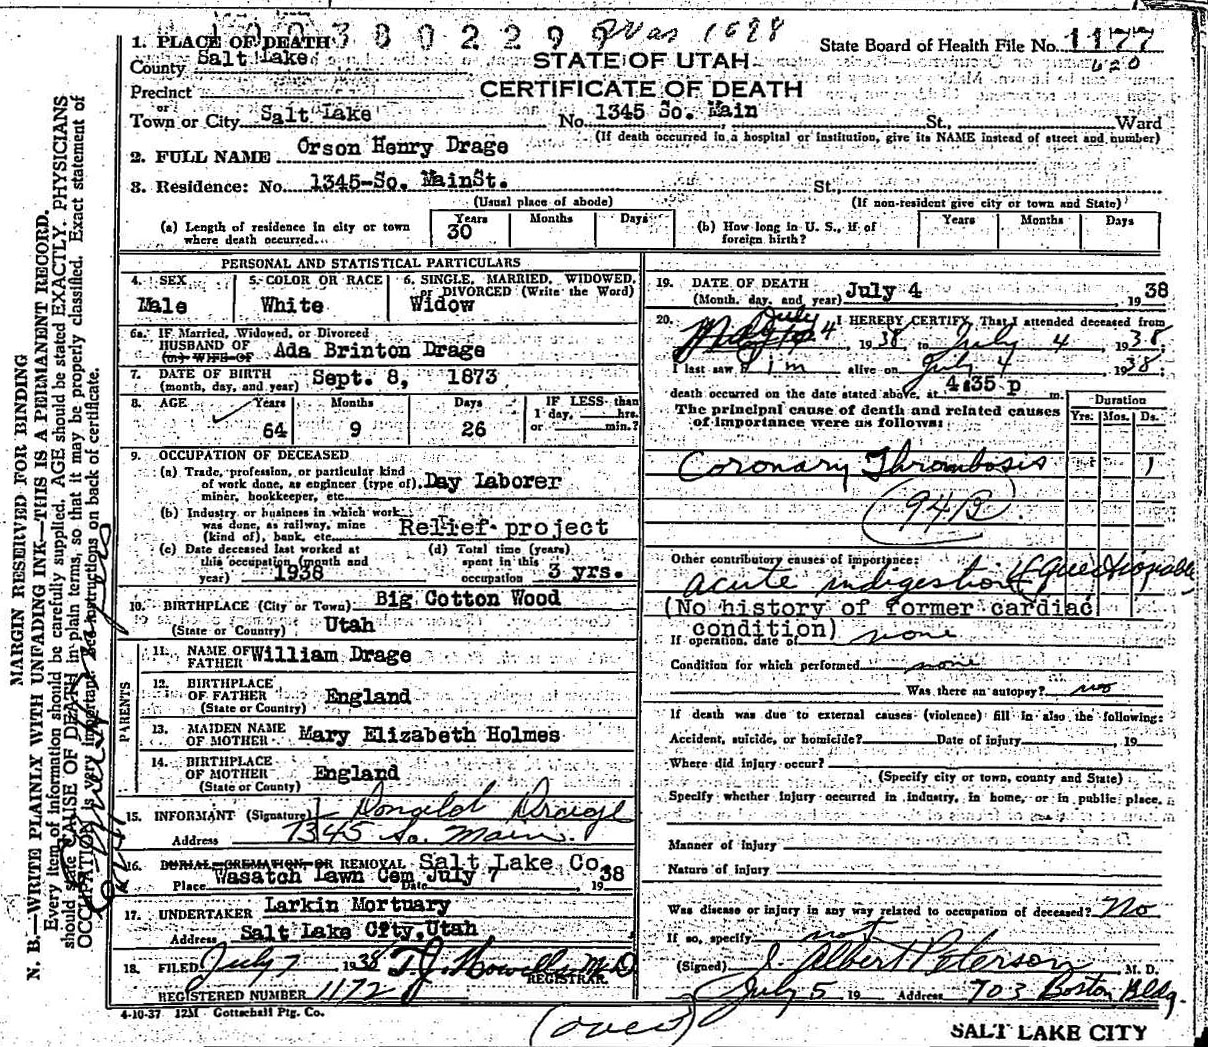 1003802299 Was 1698
1. PLACE OF DEATH
State Board of Health File No. 1177
620
County Salt Lake
STATE OF UTAH
Precinct
CERTIFICATE OF DEATH
or
Town or City Salt Lake No. 1345 So. Main St., Ward
(If death occurred in a hospital or institution, give its NAME instead of street and number)
2. FULL NAME Orson Henry Drage
3. Residence: No. 1345-So. MainSt. St.,
(Usual place of abode) (If non-resident give city or town and State)
(a) Length of residence in city or town where death occurred Years 30 Months Days
(b) How long in U. S., if of foreign birth? Years Months Days
PERSONAL AND STATISTICAL PARTICULARS
4. SEX Male
5. COLOR OR RACE White
6. SINGLE, MARRIED, WIDOWED, or DIVORCED (Write the Word) Widow
6a. IF Married, Widowed, or Divorced
HUSBAND OF
(or) WIFE OF Ada Brinton Drage
7. DATE OF BIRTH (month, day, and year) Sept. 8, 1873
8. AGE Years 64 Months 9 Days 26 IF LESS than 1 day, hrs. or min.?
9. OCCUPATION OF DECEASED
(a) Trade, profession, or particular kind
of work done, as engineer (type of), Day Laborer
miner, bookkeeper, etc.
(b) Industry or business in which work
was done, as railway, mine
(kind of), bank, etc. Relief project
(c) Date deceased last worked at this occupation (month and year) 1938
(d) Total time (years) spent in this occupation 3 yrs.
10. BIRTHPLACE (City or Town) Big Cotton Wood
(State or Country) Utah
PARENTS
11. NAME OF FATHER William Drage
12. BIRTHPLACE OF FATHER England
(State or Country)
13. MAIDEN NAME OF MOTHER Mary Elizabeth Holmes
14. BIRTHPLACE OF MOTHER England
(State or Country)
15. INFORMANT (Signature) Donald Drage
Address 1345 So. Main.
16. BURIAL, CREMATION, OR REMOVAL Salt Lake Co.
Place Wasatch Lawn Cem Date July 7 1938
17. UNDERTAKER Larkin Mortuary
Address Salt Lake City, Utah
18. FILED July 7 1938 T.J. Howells M.D.
REGISTRAR.
REGISTERED NUMBER 1172
4-10-37 12M Gottschall Ptg. Co.
19. DATE OF DEATH
(Month, day, and year) July 4 1938
20. I HEREBY CERTIFY, That I attended deceased from
July 4, 1938, to July 4, 1938.
I last saw him alive on July 4 1938;
death occurred on the date stated above, at 4:35 p m.
The principal cause of death and related causes
of importance were as follows:
Duration
Yrs. Mos. Ds.
Coronary Thrombosis 1
(94B)
Other contributory causes of importance:
acute indigestion (Questionable
(No history of former cardiac
condition)
If operation, date of none
Condition for which performed none
Was there an autopsy? no
If death was due to external causes (violence) fill in also the following:
Accident, suicide, or homicide? Date of injury , 19
Where did injury occur?
(Specify city or town, county and State)
Specify whether injury occurred in industry, in home, or in public place.
Manner of injury
Nature of injury
Was disease or injury in any way related to occupation of deceased? No
If so, specify not
(Signed) J. Albert Peterson M. D.
July 5 19 Address 703 Boston Bldg.
(over)
SALT LAKE CITY
MARGIN RESERVED FOR BINDING
N. B.—WRITE PLAINLY WITH UNFADING INK—THIS IS A PERMANENT RECORD.
Every item of information should be carefully supplied. AGE should be stated EXACTLY. PHYSICIANS
should state CAUSE OF DEATH in plain terms, so that it may be properly classified. Exact statement of
OCCUPATION is very important. See instructions on back of certificate.